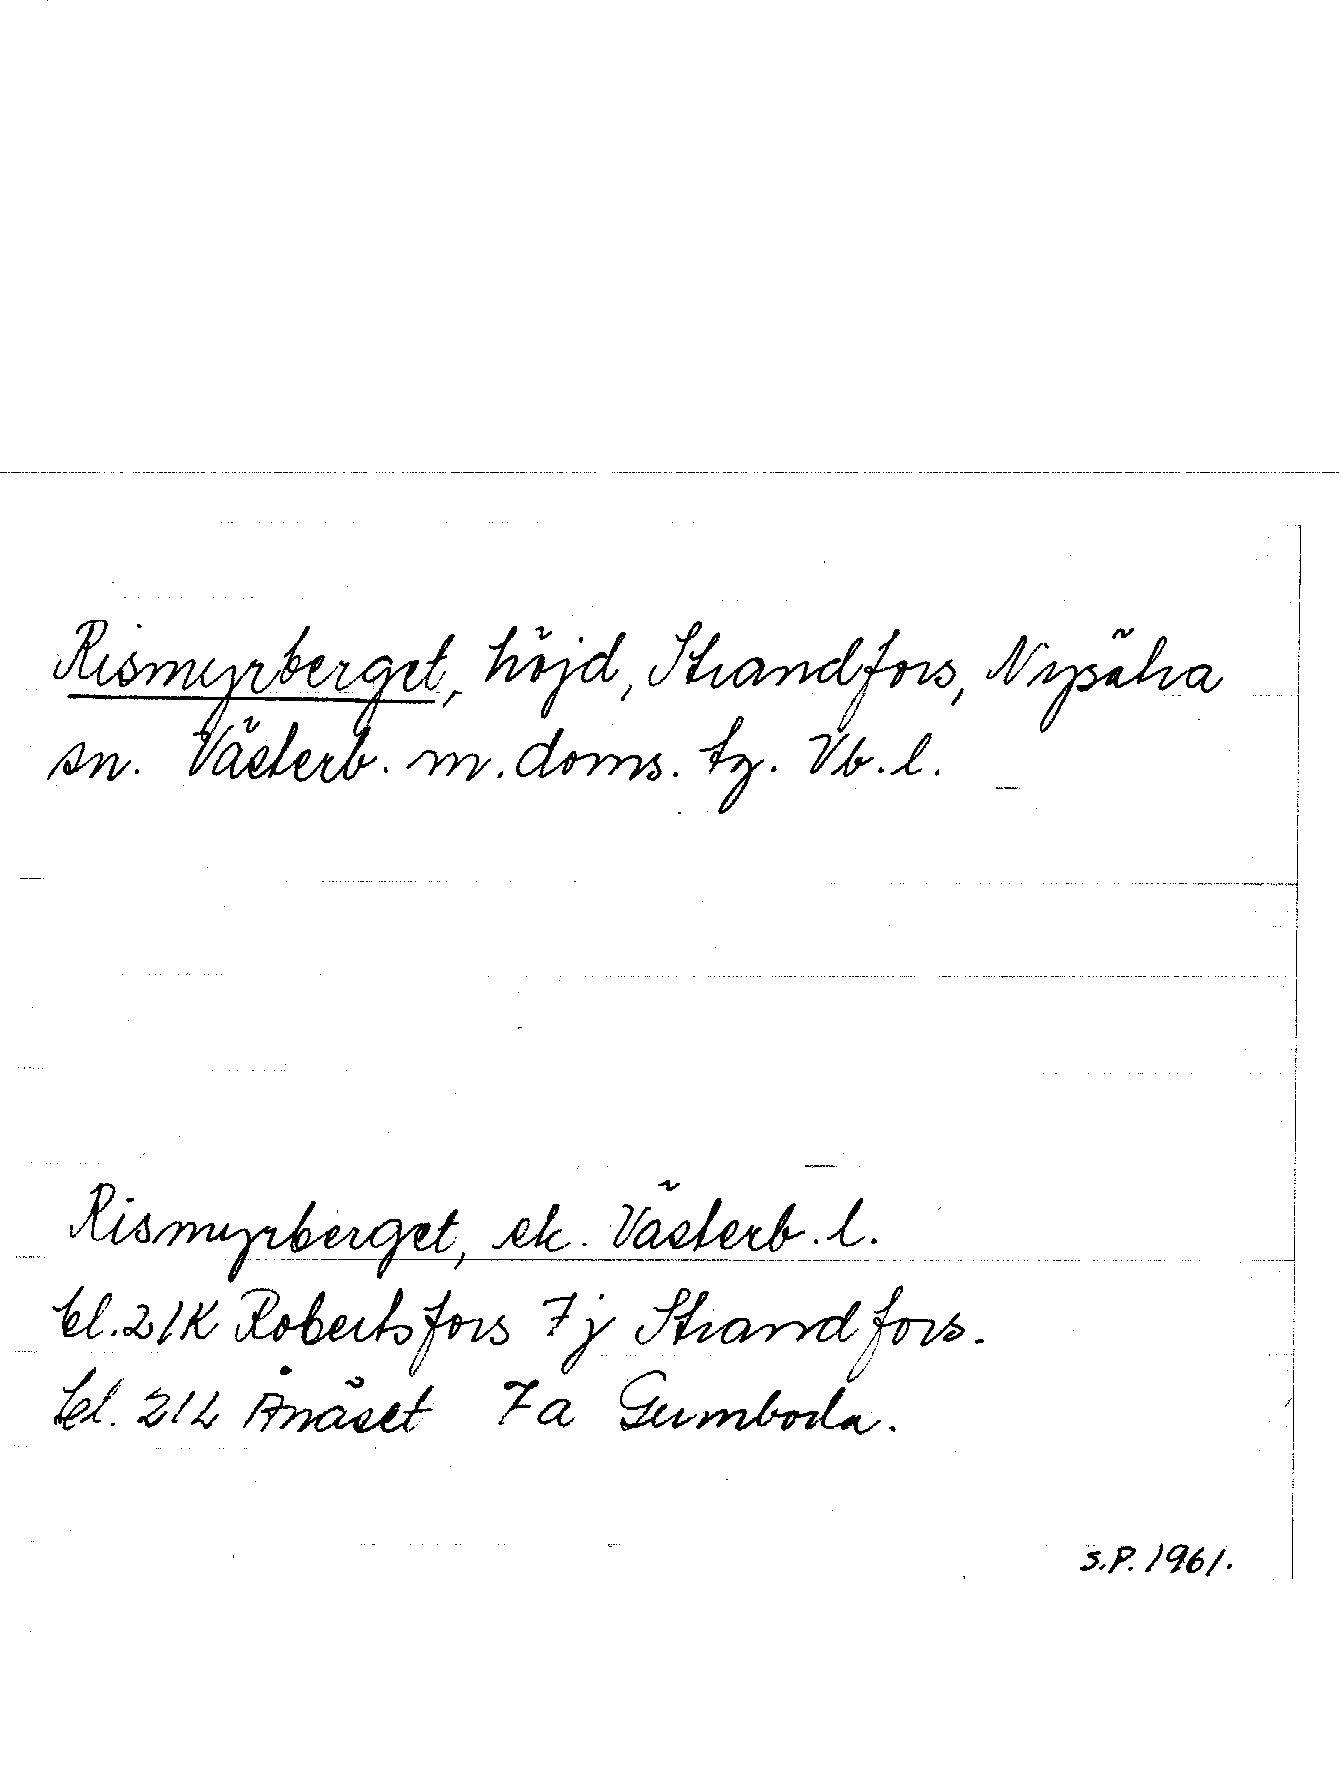 Rismyrberget, höjd, Strandfors, Nysätra
sn. Västerb. m. doms. tg. Vb. l.
Rismyrberget, ek. Västerb. l.
bl. 21K Robertsfors 7j Strandfors.
bl. 21L Ånäset 7a Gumboda.
S.P. 1961.